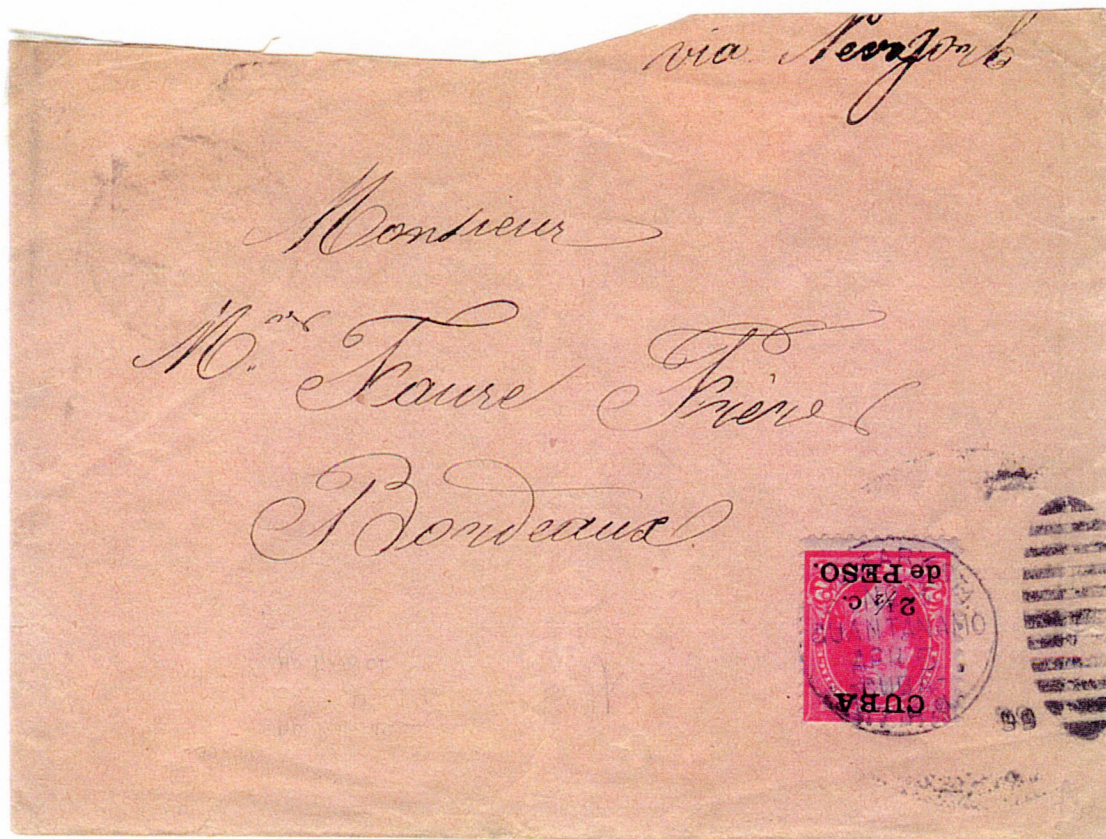 via Newyork
Monsieur
M.rs Faure Frères
Bordeaux
CUBA
2½ c.
de PESO.
99